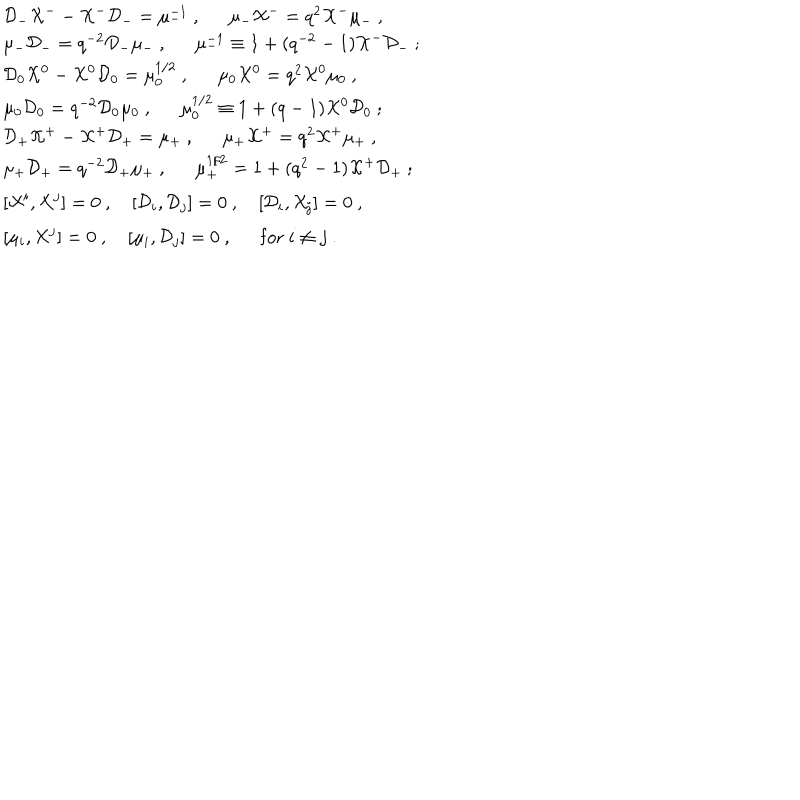 𝒟₋𝒳⁻ − 𝒳⁻𝒟₋ = μ₋⁻¹ , μ₋𝒳⁻ = q²𝒳⁻μ₋ ,
μ₋𝒟₋ = q⁻²𝒟₋μ₋ , μ₋⁻¹ ≡ 1 + (q⁻² − 1)𝒳⁻𝒟₋ ;
𝒟₀𝒳⁰ − 𝒳⁰𝒟₀ = μ₀^{1/2} , μ₀𝒳⁰ = q²𝒳⁰μ₀ ,
μ₀𝒟₀ = q⁻²𝒟₀μ₀ , μ₀^{1/2} ≡ 1 + (q − 1)𝒳⁰𝒟₀ ;
𝒟₊𝒳⁺ − 𝒳⁺𝒟₊ = μ₊ , μ₊𝒳⁺ = q²𝒳⁺μ₊ ,
μ₊𝒟₊ = q⁻²𝒟₊μ₊ , = 1 + (q² − 1)𝒳⁺𝒟₊ ;
[𝒳ⁱ, 𝒳ʲ] = 0 , [𝒟ᵢ, 𝒟ⱼ] = 0 , [𝒟ᵢ, 𝒳ⱼ] = 0 ,
[μᵢ, 𝒳ʲ] = 0 , [μᵢ, 𝒟ⱼ] = 0 , for i ≠ j .